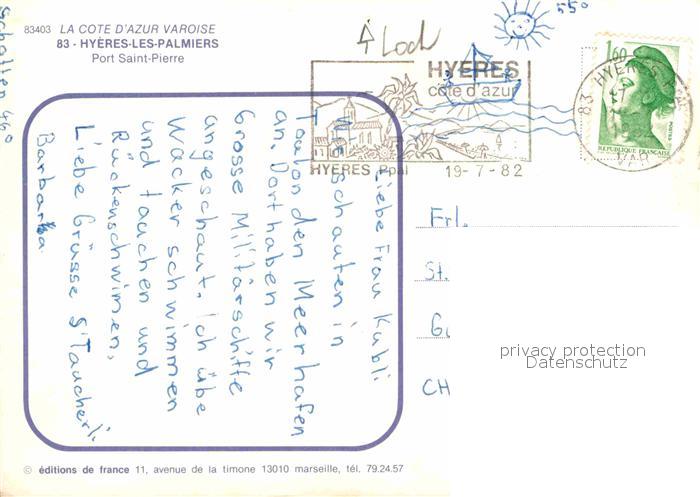 Schatten 46°
83403 LA COTE D'AZUR VAROISE
83 - HYÈRES-LES-PALMIERS
Port Saint-Pierre
Loch
55°
HYERES
côte d'azur
HYERES ppal 19-7-82
1,60
REPUBLIQUE FRANÇAISE
POSTES
83 HYERES
VAR
Liebe Frau Kübli
Wir schauten in
Toulon den Meerhafen
an. Dort haben wir
Grosse Militärschiffe
angeschaut. Ich übe
Wacker schwimmen
und tauchen und
Rückenschwimen.
Liebe Grüsse s'Taucherli
Barbara
Frl.
St.
CH
privacy protection
Datenschutz
© éditions de france 11, avenue de la timone 13010 marseille, tél. 79.24.57